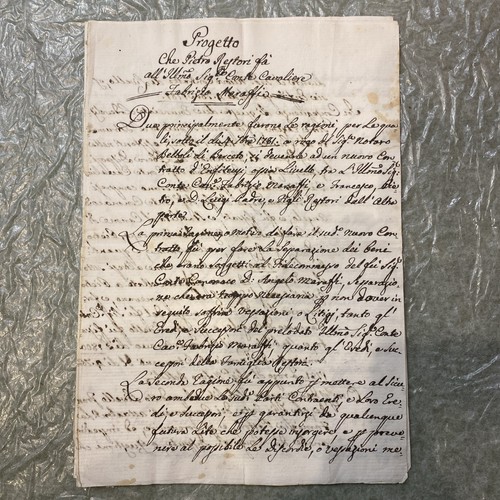 Progetto
Che Pietro Restori fà
all' Illmo Sigr Conte Cavaliere
Fabrizio Maraffi
Due principalmente furono le ragioni, per le qua
li, sotto il dì 1781. a rogo del Sigr Notaro
Belloli di Berceto, si devenne ad un nuovo Con
tratto d'Enfiteusi ossia Livello, tra l'Illmo Sigr
Conte Cavr Fabrizio Maraffi, e Francesco, Pie
tro, e D. Luigi Padre, e Figli Restori dall' altra
parte.
La prima ragione, o motivo di fare il sudo nuovo Con
tratto fu per fare la Separazione dei beni
che erano soggetti al Fidecommesso del fu Sigr
Conte Angelo Maraffi, Separazio
ne che era troppo necessaria p non dover in
seguito soffrire Vessazioni, o Litigj, tanto gl'
Eredi, e Successori del prelodato Illmo Sigr Conte
Cavr Fabrizio Maraffi, quanto gl' Eredi, e Suc
cessori della Famiglia Restori.
La Seconda Ragione fu appunto p mettere al Sicu
ro ambedue le Sude Parti Contraenti, e loro Ere
di, e Successori, et p garantirsi da qualunque
futura Lite che potesse insorgere e p preve
nere al possibile Le Discordie, o vessazioni me